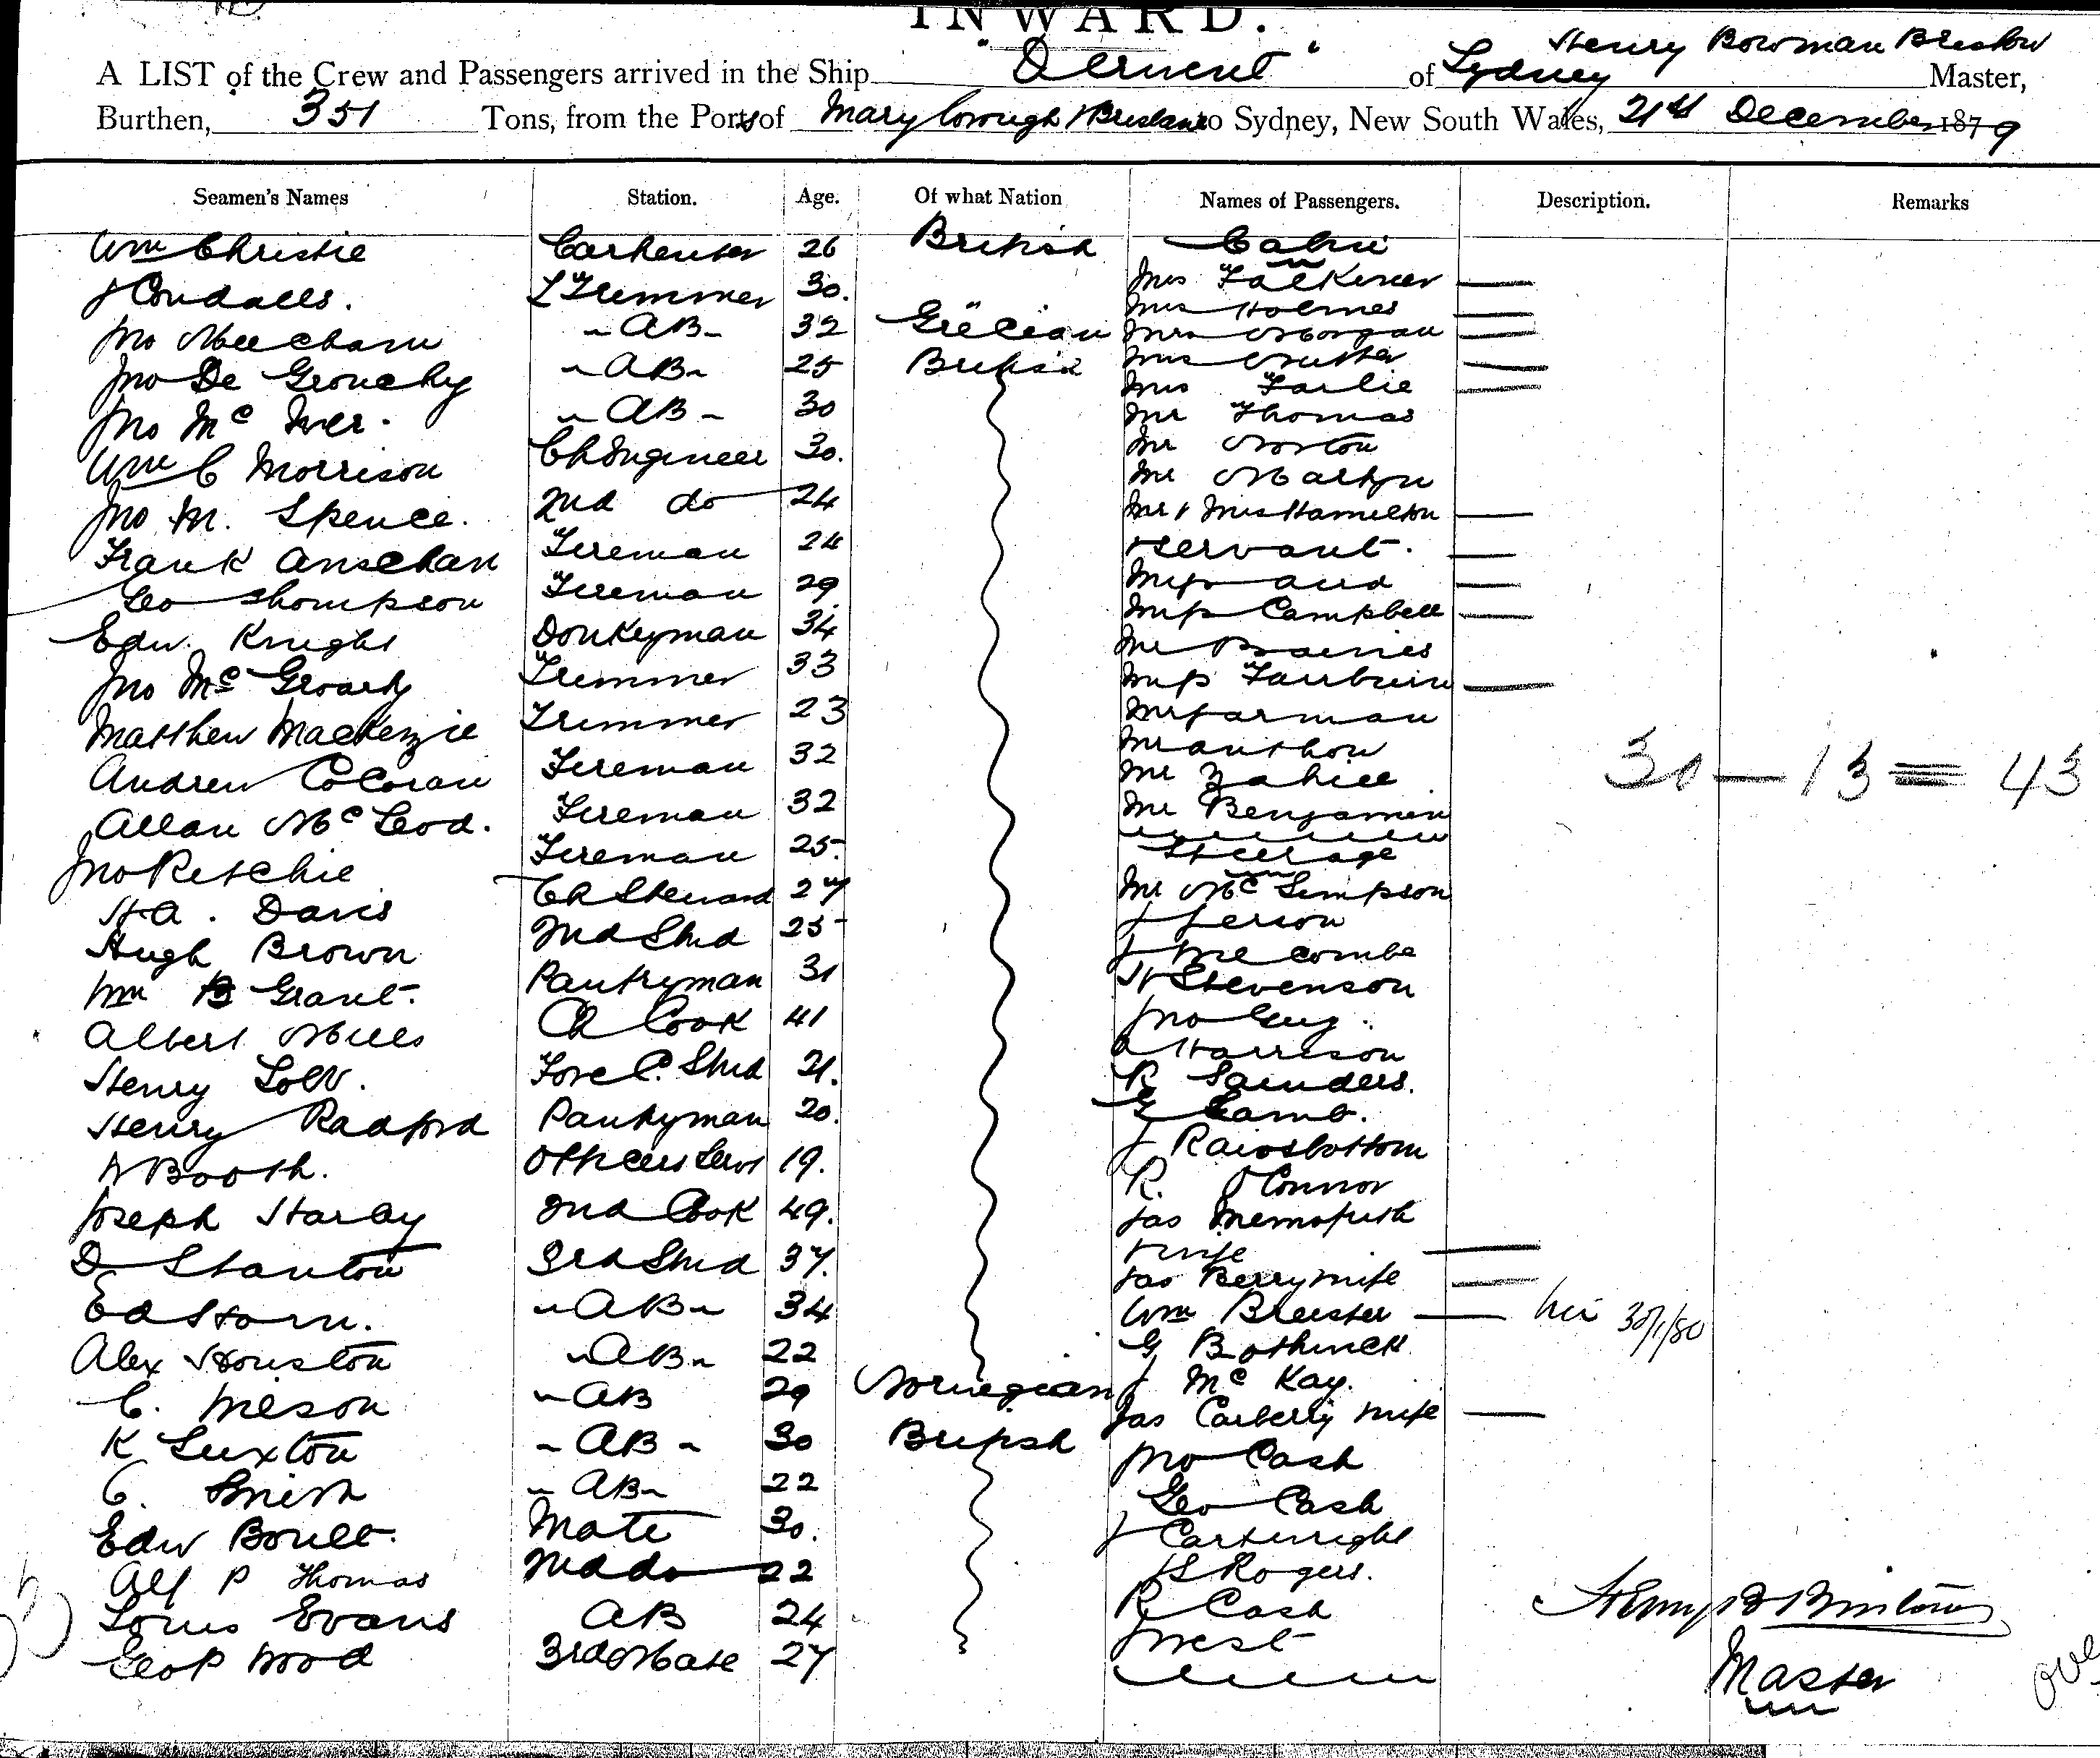 INWARD.
Henry Bowman Bristow
A LIST of the Crew and Passengers arrived in the Ship "Derwent" of Sydney Master,
Burthen, 351 Tons, from the Ports of Maryborough & Brisbane to Sydney, New South Wales, 21st December 1879
Seamen's Names Station. Age. Of what Nation Names of Passengers. Description. Remarks
Wm Christie Carpenter 26 British Cabin
J Condaells. L Trimmer 30. Mrs Falkiner
Mrs Holmes
Jno Meecham - AB - 32 Grecian Mrs Morgan
Jno De Grouchy - AB - 25 British Mrs
Mrs Farlie
Jno Mc Iver. - AB - 30 Mr Thomas
Mr Norton
Wm C Morrison Ch Engineer 30. Mr Martyn
Jno M. Spence. 2nd do 24 Mr & Mrs Hamilton
Frank Fireman 24 & servant.
Geo Thompson Fireman 29 Miss and
Miss Campbell
Edw. Knight Donkeyman 34 Mr Baines
Jno Mc Groarty Trimmer 33 Miss Fairbairn
Matthew Mackenzie Trimmer 23 Mr Jarman
Mr
Andrew CoCoran Fireman 32 Mr
Allan McLeod. Fireman 32 Mr Benjamin
Jno Retchie Fireman 25. Steerage
H A. Davis Ch Steward 27 Mr Mc Simpson
Hugh Brown 2nd Stwd 25 J
J
Wm B Grant. Pantryman 31 H Stevenson
Albert Mills Ch Cook 41 Jno Guy.
Henry Fore C. Stwd 21. A Harrison
R Saunders.
Henry Radford Pantryman 20. G Lamb.
W Booth. Officers Servt 19. J Ramsbottom
R. O'Connor
Joseph Harby 2nd Cook 49. Jas
D Stanton 3rd Stwd 37. & wife
Jas Berry wife
Ed Horn. - AB - 34 Wm Brewster 30/1/80
Alex Houston - AB - 22 G
C. Meson - AB 29 Norwegian J McKay.
Jas Carberry wife
K Luxton - AB - 30 British Jno Cash
C. Smith - AB - 22 Geo Cash
Edw Boult. Mate 30. J Cartwright
Alf P Thomas 2nd do 22 H S Rogers.
Louis Evans AB 24 R Cash
Geo P Wood 3rd Mate 27 J West
30 — 13 = 43
Henry B Bristow
Master